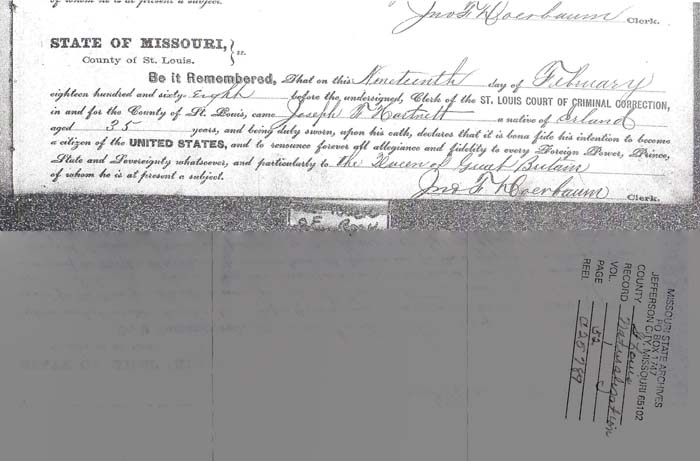 of whom he is at present a subject.
Jno F Doerbaum Clerk.
STATE OF MISSOURI,
County of St. Louis. } ss.
Be it Remembered, That on this Nineteenth day of February
eighteen hundred and sixty eighth before the undersigned, Clerk of the ST. LOUIS COURT OF CRIMINAL CORRECTION,
in and for the County of St. Louis, came Joseph F Hartnett a native of Irland
aged 35 years, and being duly sworn, upon his oath, declares that it is bona fide his intention to become
a citizen of the UNITED STATES, and to renounce forever all allegiance and fidelity to every Foreign Power, Prince,
State and Sovereignty whatsoever, and particularly to the Queen of Great Britain
of whom he is at present a subject.
Jno F Doerbaum Clerk.
MISSOURI STATE ARCHIVES
PO BOX 1747
JEFFERSON CITY, MISSOURI 65102
COUNTY St Louis
RECORD Naturalization
VOL. 1
PAGE 52
REEL C25789